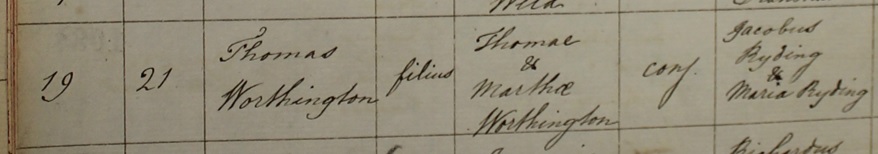 19
21
Thomas
Worthington
filius
Thomae
&
Marthæ
Worthington
conj.
Jacobus
Ryding
&
Maria Ryding
Richardus